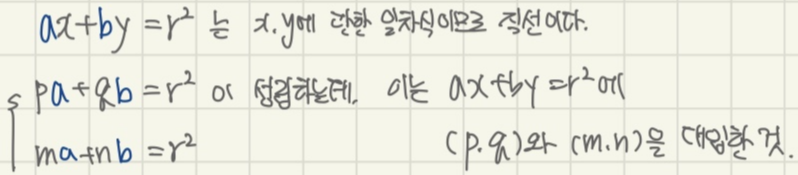 ax+by=r² 는 x.y에 관한 일차식이므로 직선이다.
{ pa+qb=r² 이 성립하는데. 이는 ax+by=r²에
ma+nb=r² (p.q)와 (m.n)을 대입한 것.